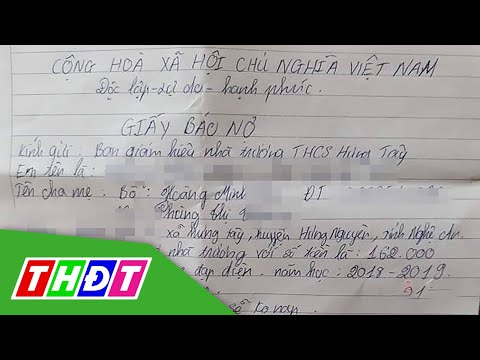 CỘNG HOÀ XÃ HỘI CHỦ NGHĨA VIỆT NAM
Độc lập - Tự do - hạnh phúc.
GIẤY BÁO NỢ
Kính gửi : Ban giám hiệu nhà trường THCS Hưng Tây
Em tên là :
Tên cha mẹ. Bố : Hoàng Minh ĐT
thị
xã hưng tây, huyện Hưng Nguyên, tỉnh Nghệ An.
nhà trường với số tiền là : 162.000
đạp điện. năm học : 2018 - 2019.
91
THĐT